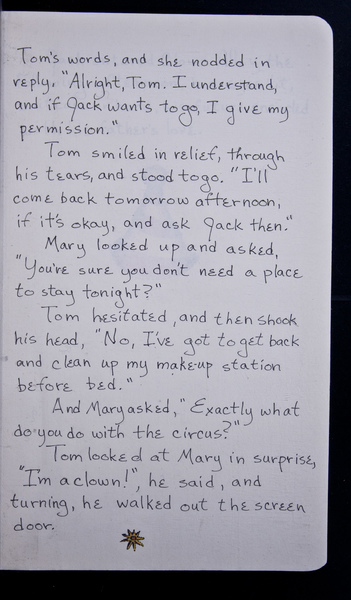 Tom's words, and she nodded in
reply. "Alright, Tom. I understand,
and if Jack wants to go, I give my
permission."
Tom smiled in relief, through
his tears, and stood to go. "I'll
come back tomorrow afternoon,
if it's okay, and ask Jack then."
Mary looked up and asked,
"You're sure you don't need a place
to stay tonight?"
Tom hesitated, and then shook
his head, "No, I've got to get back
and clean up my make-up station
before bed."
And Mary asked, "Exactly what
do you do with the circus?"
Tom looked at Mary in surprise,
"I'm a clown!", he said, and
turning, he walked out the screen
door.